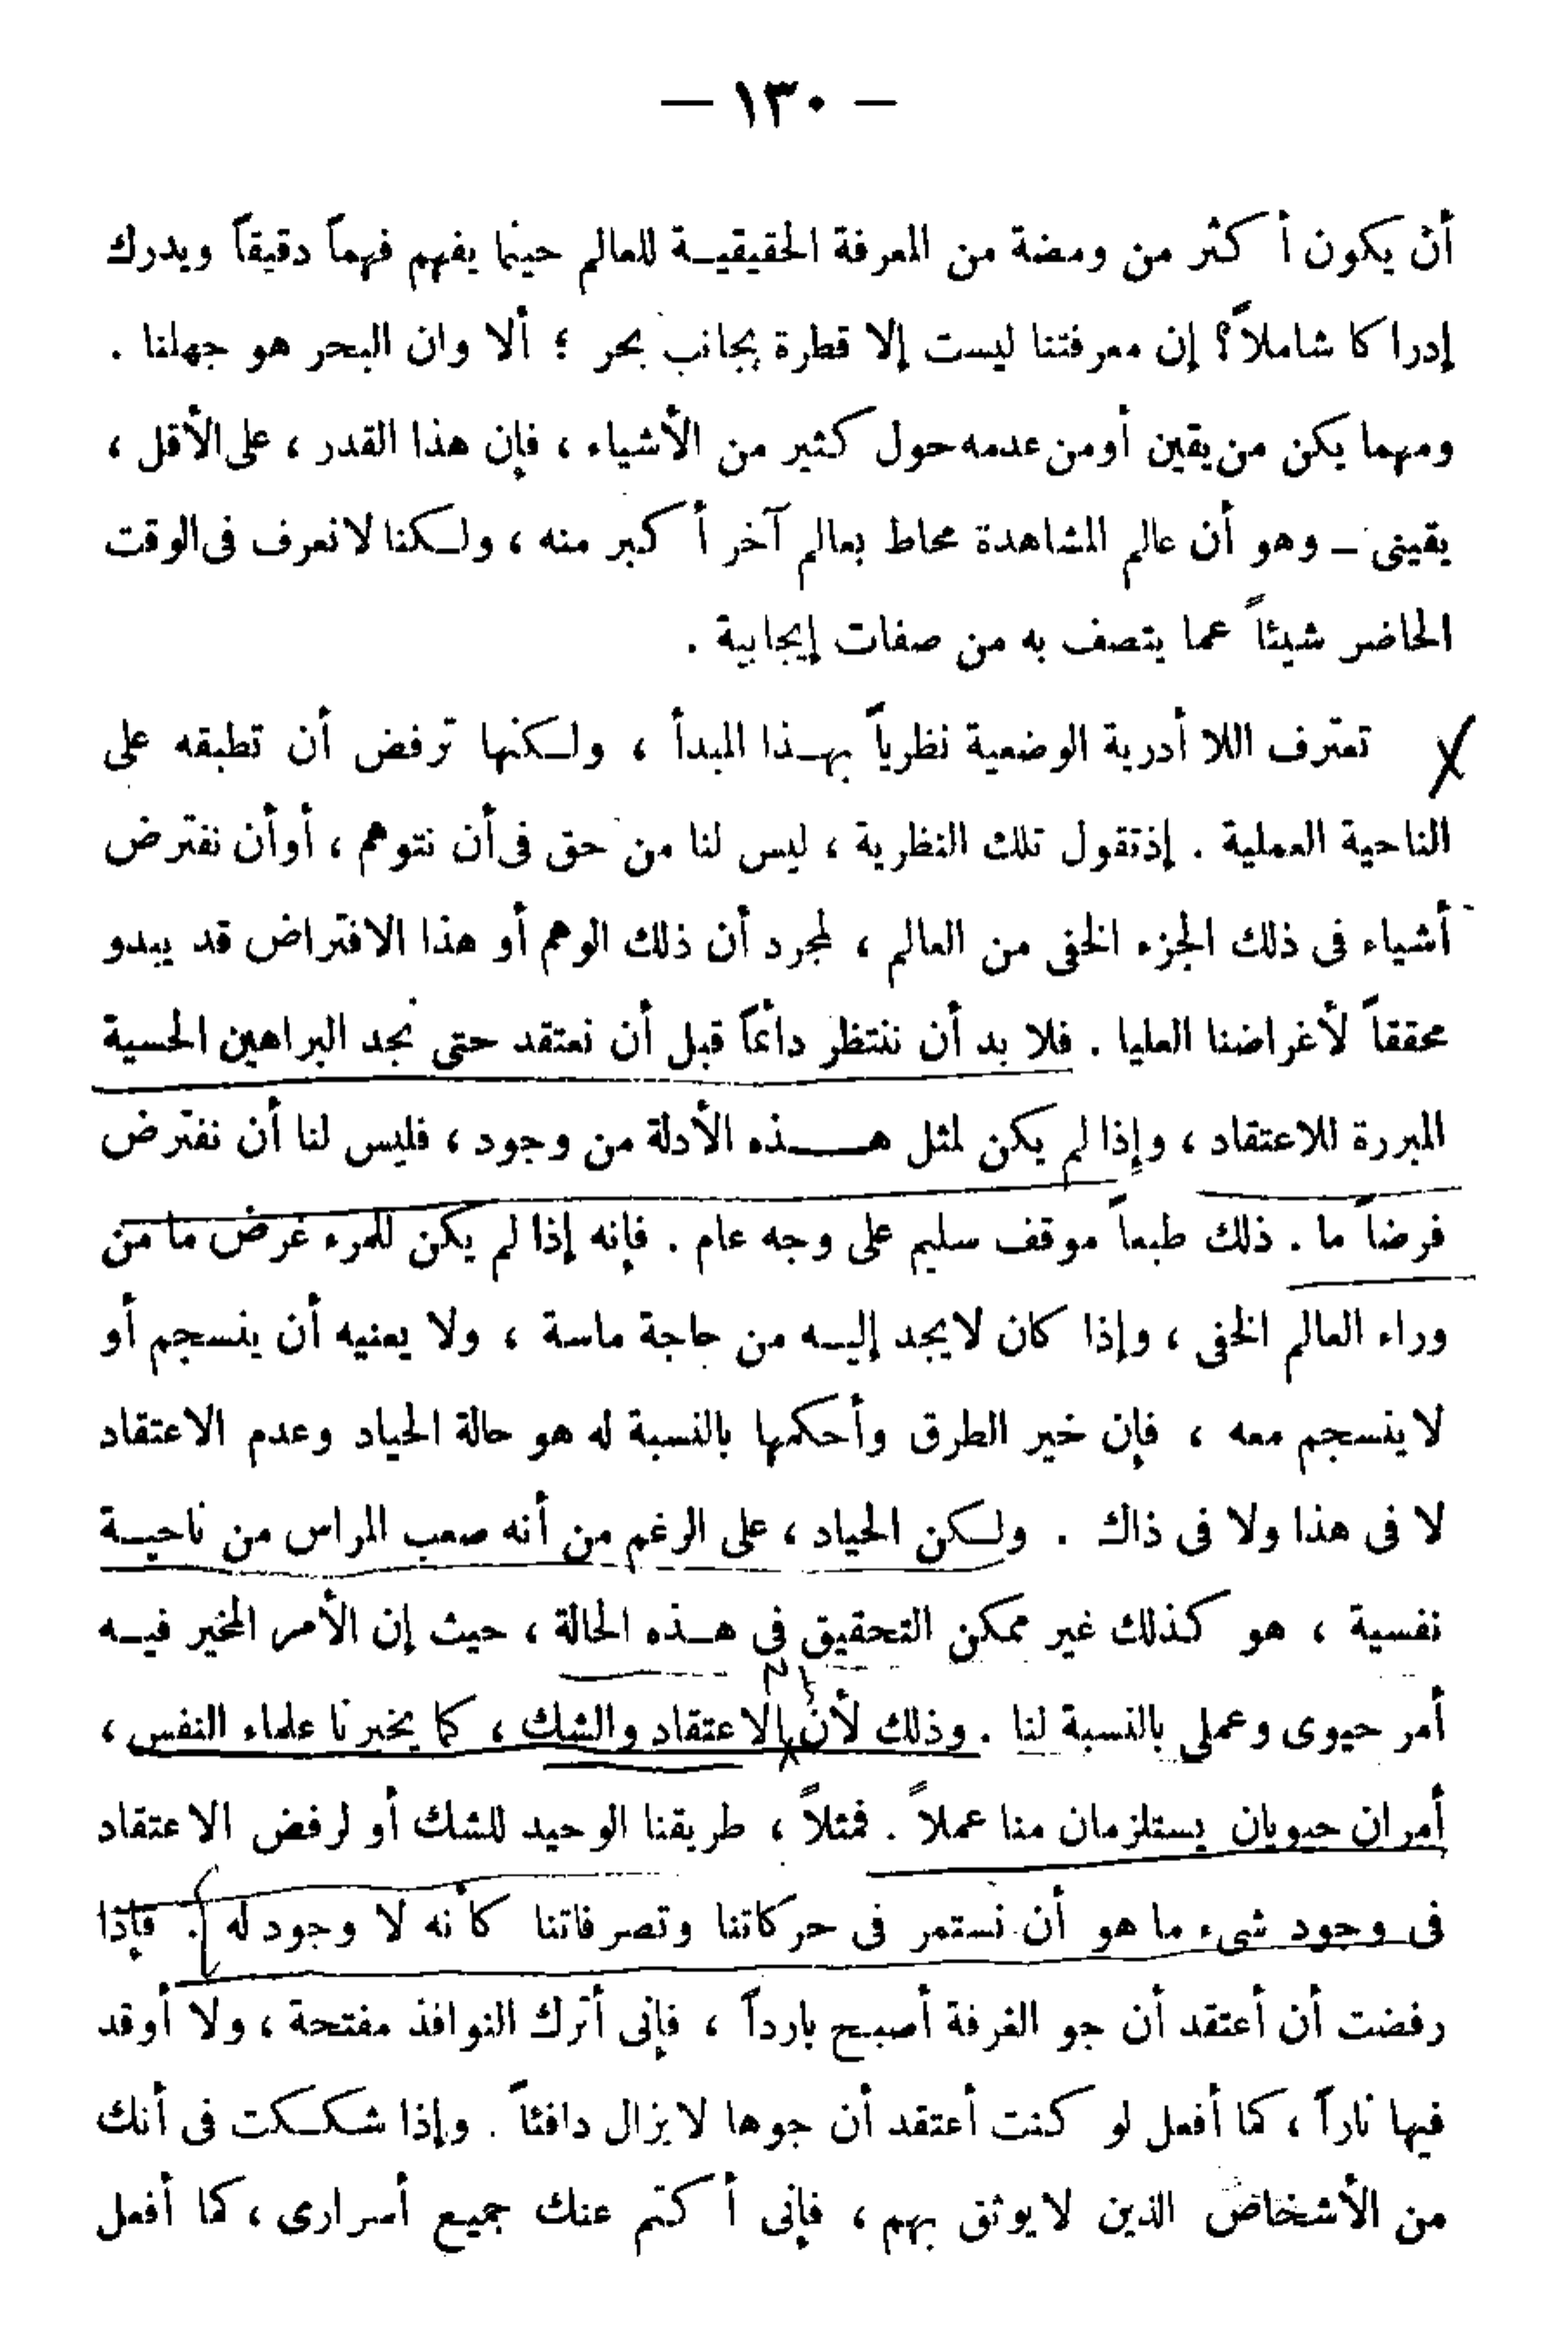 — ١٣٠ —
أن يكون أكثر من ومضة من المعرفة الحقيقيـة للعالم حينما يفهم فهماً دقيقاً ويدرك
إدراكا شاملاً؟ إن معرفتنا ليست إلا قطرة بجانب بحر ؛ ألا وان البحر هو جهلنا .
ومهما يكن من يقين أو من عدمه حول كثير من الأشياء ، فإن هذا القدر ، على الأقل ،
يقينى ــ وهو أن عالم المشاهدة محاط بعالم آخر أكبر منه ، ولـكنا لا نعرف فى الوقت
الحاضر شيئاً عما يتصف به من صفات إيجابية .
تعترف اللا أدرية الوضعية نظرياً بهـذا المبدأ ، ولـكنها ترفض أن تطبقه على
الناحية العملية . إذ تقول تلك النظرية ، ليس لنا من حق فى أن نتوهم ، أو أن نفترض
أشياء فى ذلك الجزء الخفى من العالم ، لمجرد أن ذلك الوهم أو هذا الافتراض قد يبدو
محققاً لأغراضنا العليا . فلا بد أن ننتظر دائماً قبل أن نعتقد حتى نجد البراهين الحسية
المبررة للاعتقاد ، وإذا لم يكن لمثل هـــذه الأدلة من وجود ، فليس لنا أن نفترض
فرضاً ما . ذلك طبعاً موقف سليم على وجه عام . فإنه إذا لم يكن للمرء غرض ما من
وراء العالم الخفى ، وإذا كان لا يجد إليـه من حاجة ماسة ، ولا يعنيه أن ينسجم أو
لا ينسجم معه ، فإن خير الطرق وأحكمها بالنسبة له هو حالة الحياد وعدم الاعتقاد
لا فى هذا ولا فى ذاك . ولـكن الحياد ، على الرغم من أنه صعب المراس من ناحيـة
نفسية ، هو كذلك غير ممكن التحقيق فى هـذه الحالة ، حيث إن الأمر المخير فيـه
أمر حيوى وعملى بالنسبة لنا . وذلك لأن الاعتقاد والشك ، كما يخبرنا علماء النفس ،
أمران حيويان يستلزمان منا عملاً . فمثلاً ، طريقنا الوحيد للشك أو لرفض الاعتقاد
فى وجود شىء ما هو أن نستمر فى حركاتنا وتصرفاتنا كأنه لا وجود له . فإذا
رفضت أن أعتقد أن جو الغرفة أصبح بارداً ، فإنى أترك النوافذ مفتحة ، ولا أوقد
فيها ناراً ، كما أفعل لو كنت أعتقد أن جوها لا يزال دافئاً . وإذا شكـكت فى أنك
من الأشخاص الذين لا يوثق بهم ، فإنى أكتم عنك جميع أسرارى ، كما أفعل